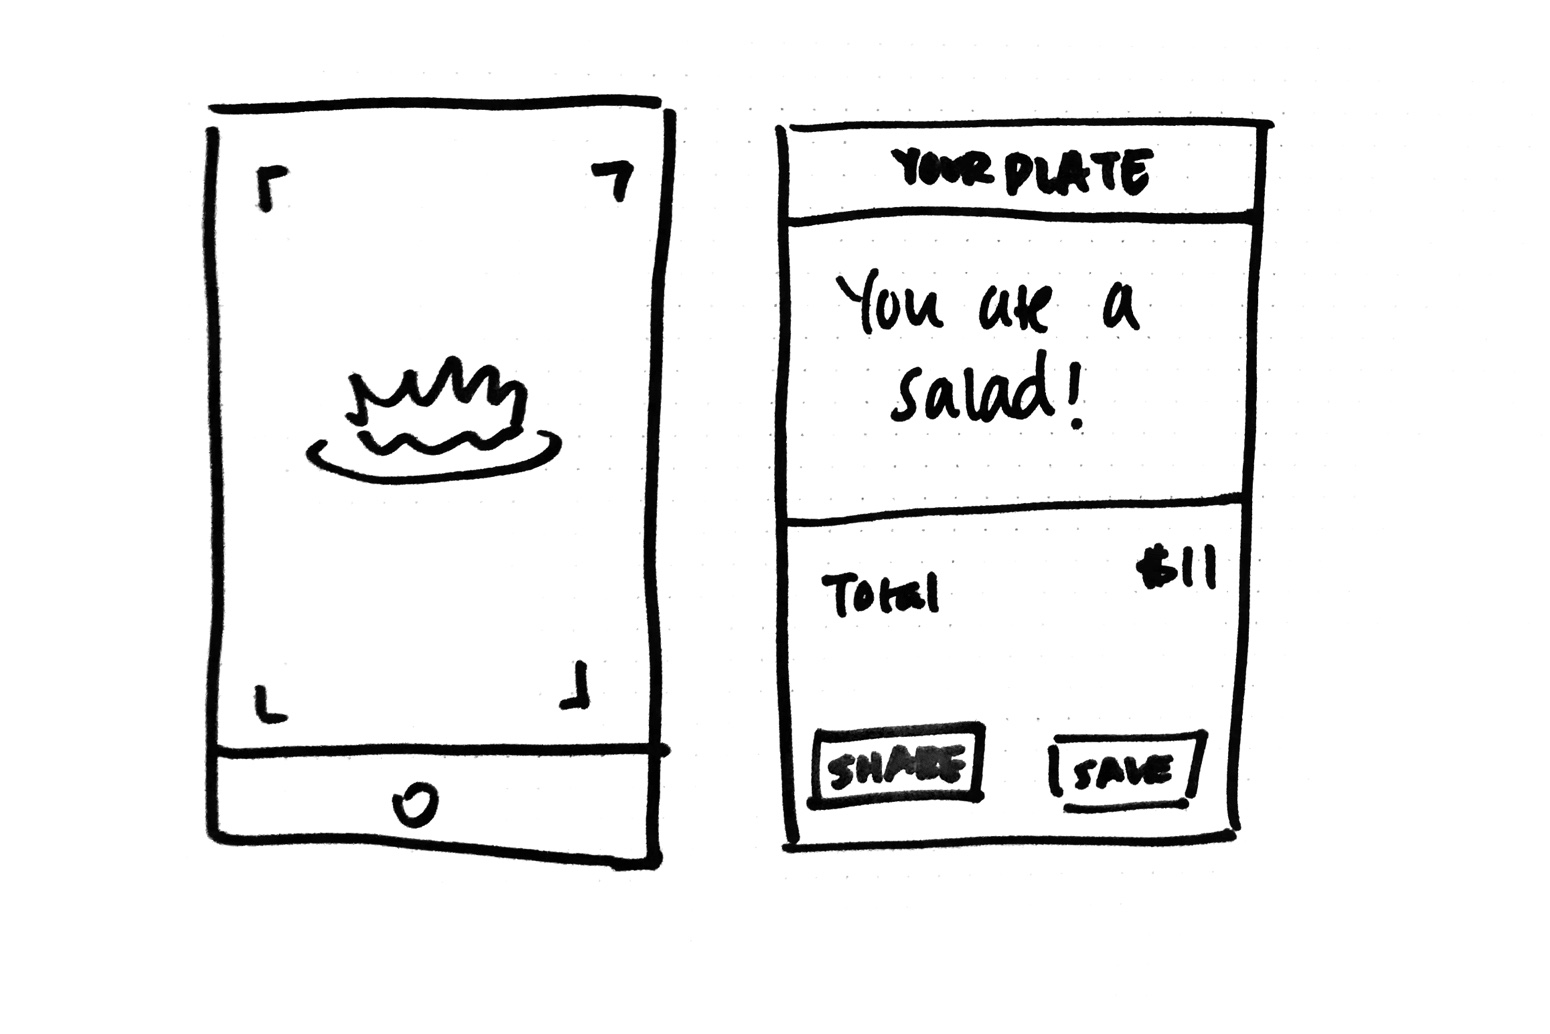 YOUR PLATE
You ate a
salad!
Total $11
SHARE SAVE